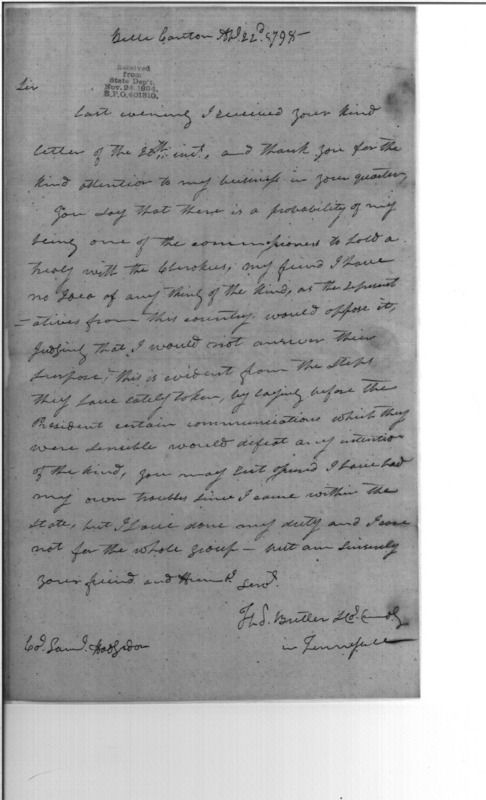 Belle Canton Apl. 22d. 1798 -
Received
from
State Dep't.
Nov. 24, 1904.
R.P.O. 401310.
Sir
Last evening I received your kind
letter of the 20th. inst., and thank you for the
kind attention to my business in your quarter,
You say that there is a probability of my
being one of the commissioners to hold a
treaty with the Cherokees, my friend I have
no Idea of any thing of the kind, as the represent
=atives from this country would oppose it,
Judging that I would not answer their
purpose, this is evident from the steps
they have lately taken, by laying before the
President certain communications which they
were sensible would defeat any intention
of the kind, you may rest assured I have had
my own troubles since I came within the
State, but I have done my duty and I care
not for the whole group - but am sincerely
your friend and Humb. Servt.
Ths. Butler Lt. Col. Comdg
in Tennessee
Col. Saml. Hodgdon